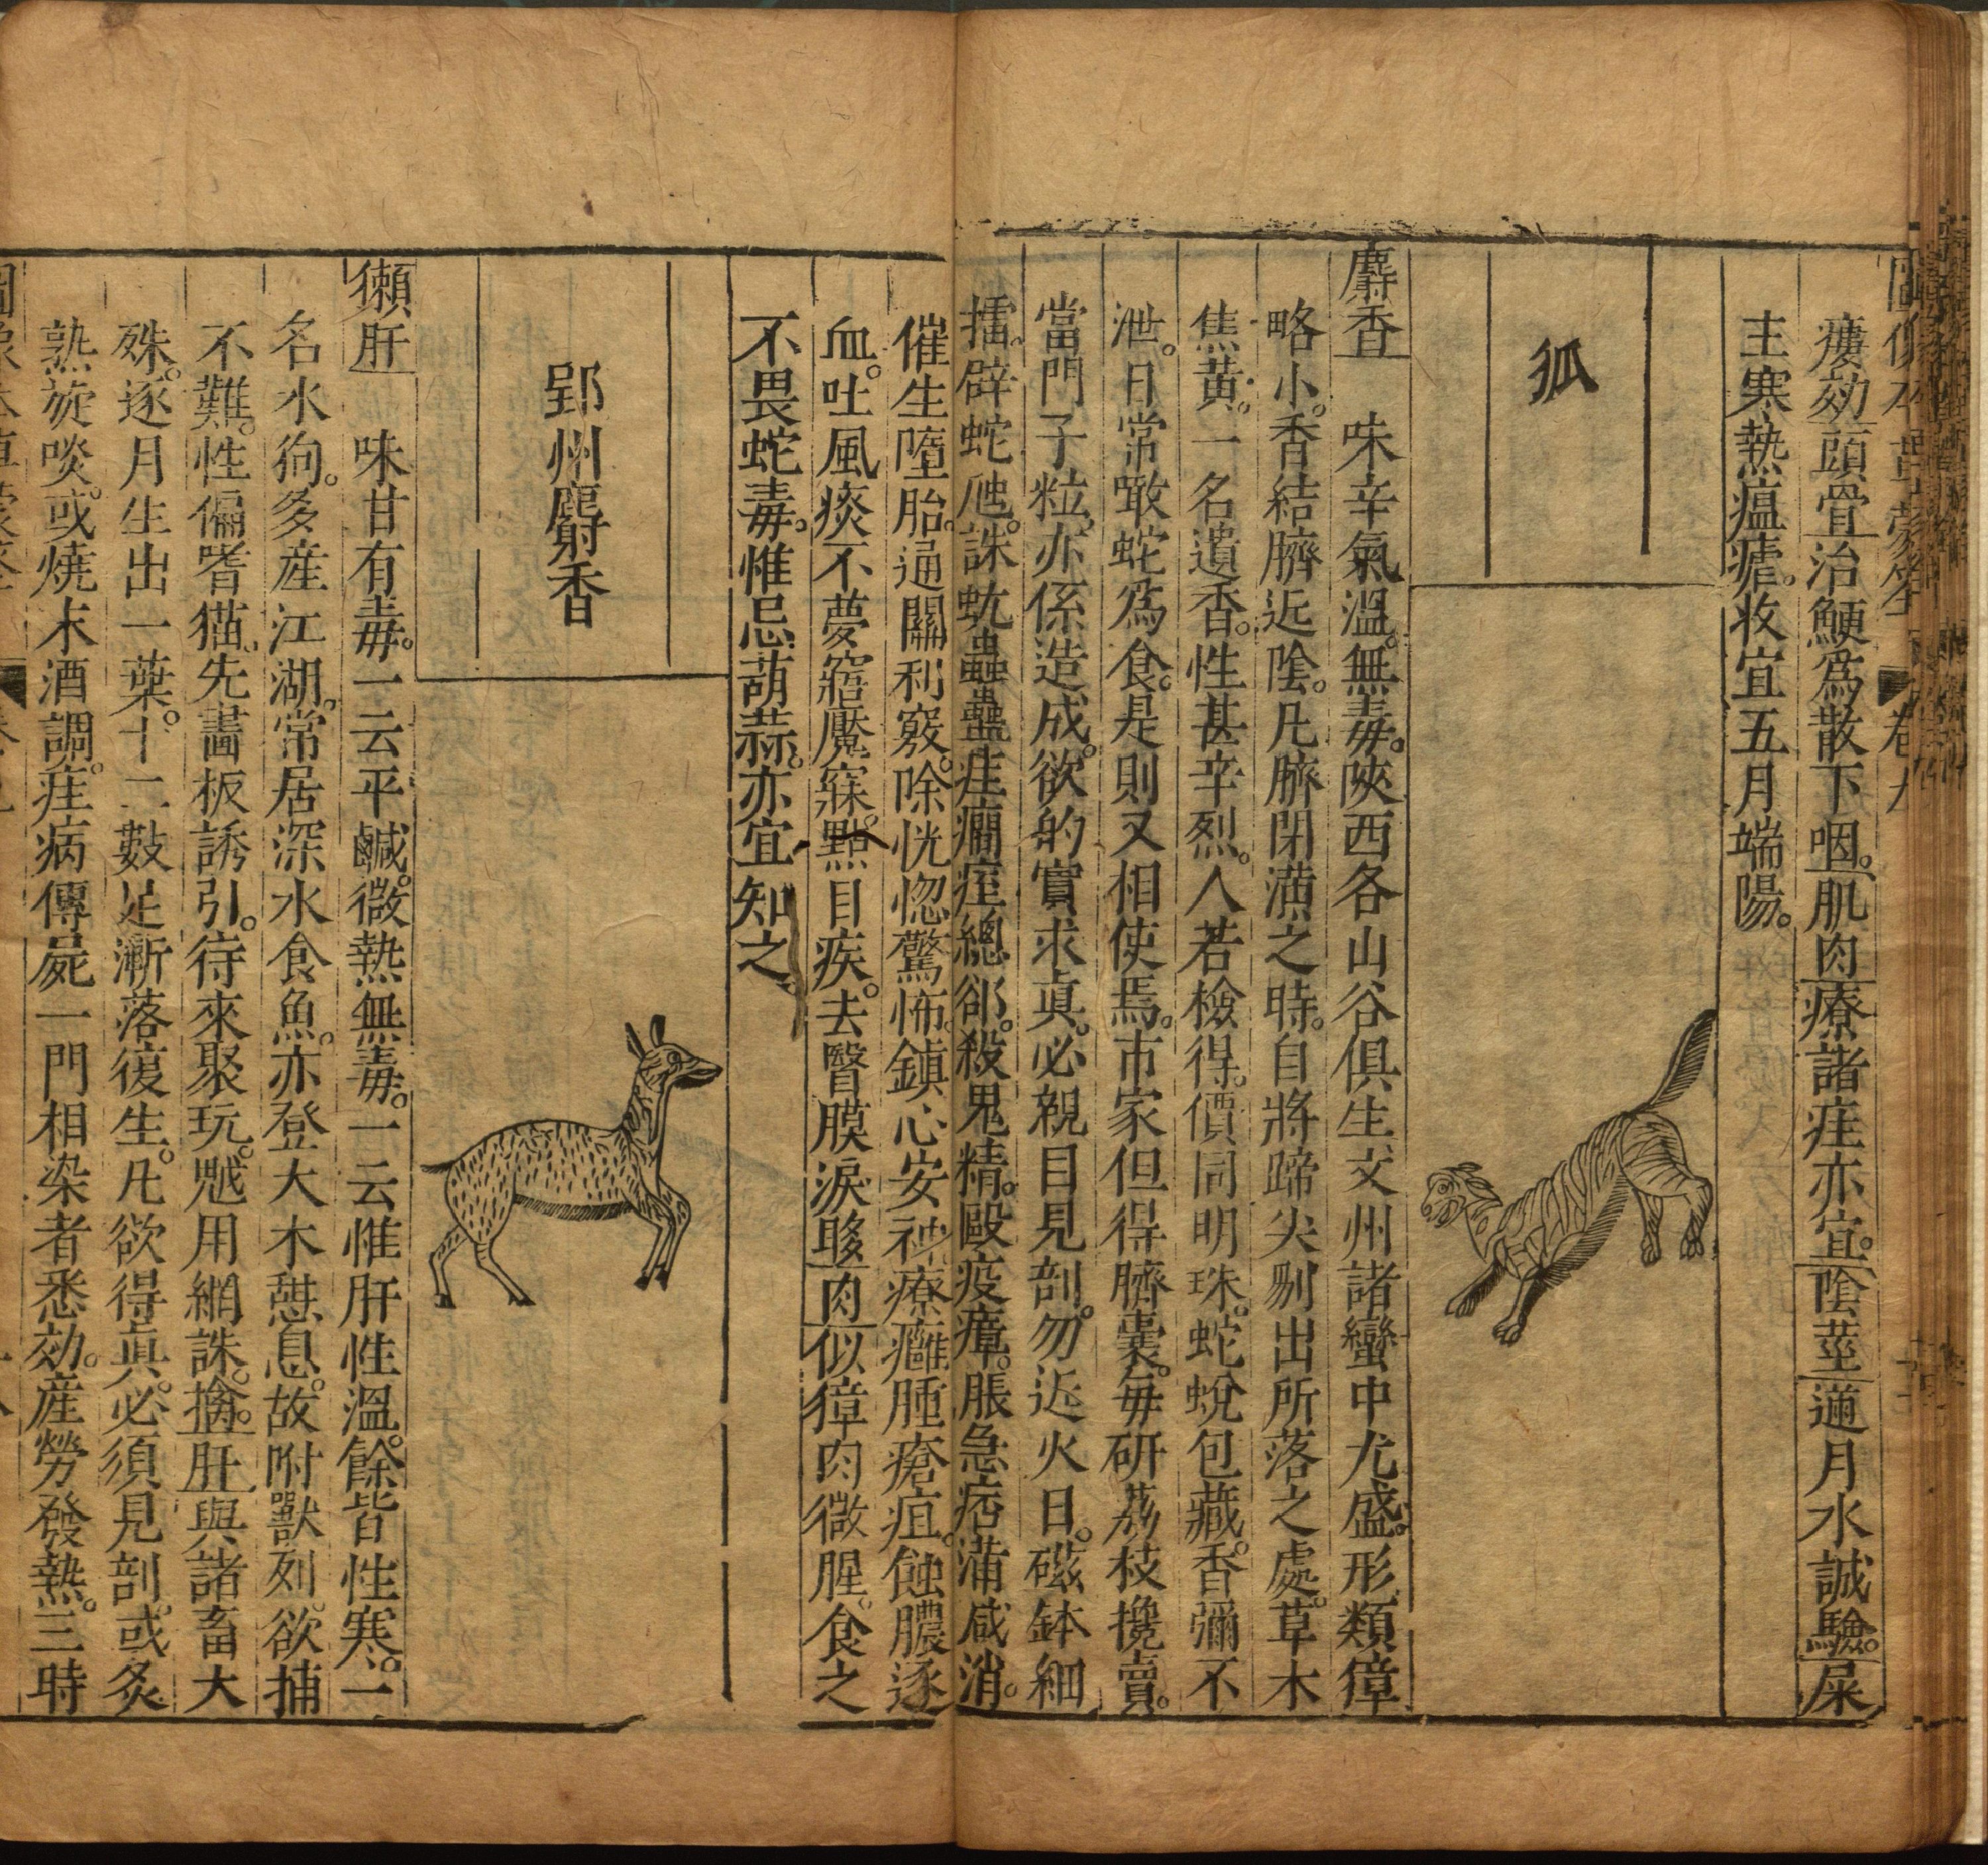 瘻効頭骨治鯁爲散下咽肌肉療諸疰亦宜陰莖適月水誠驗屎
主寒熱瘟瘧收宜五月端陽
狐
麝香 味辛氣溫無毒陝西各山谷俱生文州諸蠻中尤盛形類獐
略小香結臍近陰凡臍閉滿之時自將蹄尖剔出所落之處草木
焦黃一名遺香性甚辛烈人若檢得價同明珠蛇蛻包藏香彌不
泄日常噉蛇爲食是則又相使焉市家但得臍囊每研荔枝攙賣
當門子粒亦係造成欲的實求眞必親目見剖勿近火日磁鉢細
擂辟蛇虺誅蚘蟲蠱疰癎痓總郤殺鬼精毆疫瘴脹急痞滿咸消
催生墮胎通關利竅除恍惚驚怖鎮心安神療癰腫瘡疽蝕膿逐
血吐風痰不夢寤魘寐點目疾去瞖膜淚眵肉似獐肉微腥食之
不畏蛇毒惟忌葫蒜亦宜知之
郢州麝香
獺肝 味甘有毒一云平鹹微熱無毒一云惟肝性溫餘皆性寒一
名水狗多産江湖常居深水食魚亦登大木憩息故附獸列欲捕
不難性偏嗜猫先畵板誘引待來聚玩魆用網誅擒肝與諸畜大
殊逐月生出一葉十二數足漸落復生凡欲得眞必須見剖或炙
熟旋啖或燒末酒調疰病傳屍一門相染者悉効産勞發熱三時